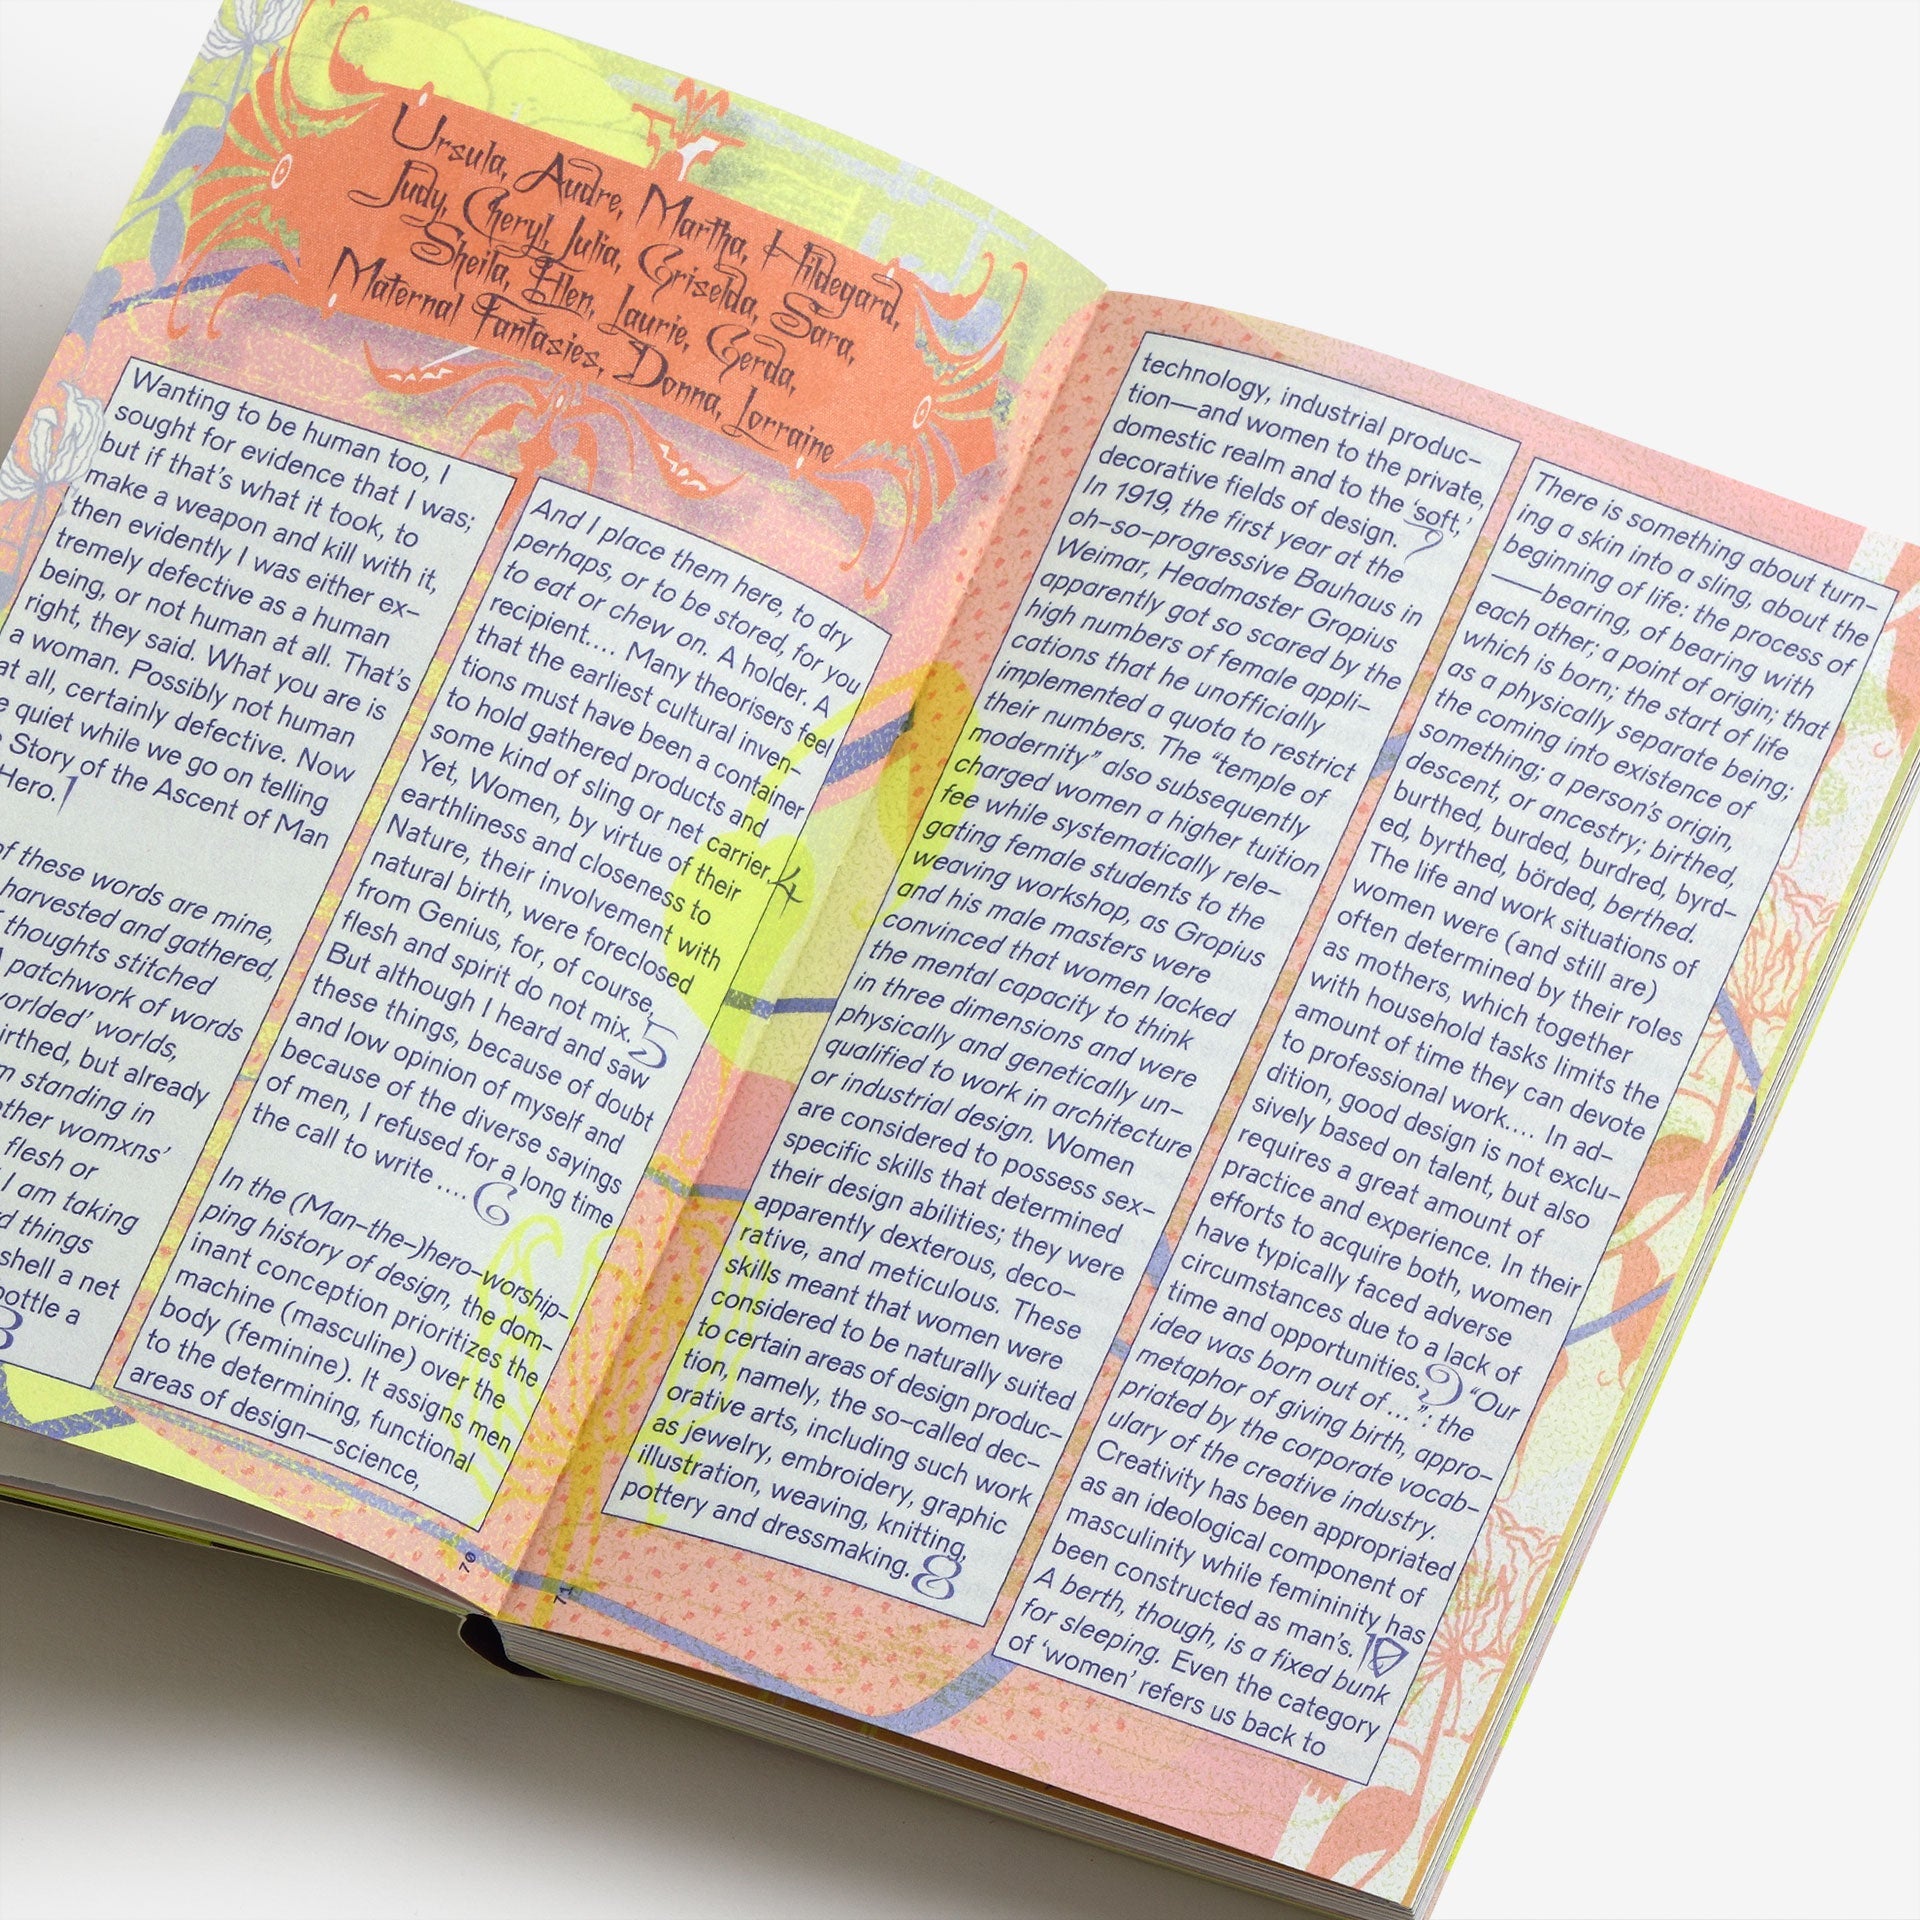 Ursula, Audre, Martha, Hildegard,
Judy, Cheryl, Julia, Griselda, Sara,
Sheila, Ellen, Laurie, Gerda,
Maternal Fantasies, Donna, Lorraine
Wanting to be human too, I
sought for evidence that I was;
but if that's what it took, to
make a weapon and kill with it,
then evidently I was either ex-
tremely defective as a human
being, or not human at all. That's
right, they said. What you are is
a woman. Possibly not human
at all, certainly defective. Now
quiet while we go on telling
Story of the Ascent of Man
Hero.1
of these words are mine,
harvested and gathered,
thoughts stitched
patchwork of words
worlds,
but already
standing in
womxns'
flesh or
I am taking
things
shell a net
bottle a
3
And I place them here, to dry
perhaps, or to be stored, for you
to eat or chew on. A holder. A
recipient.... Many theorisers feel
that the earliest cultural inven-
tions must have been a container
to hold gathered products and
some kind of sling or net carrier.4
Yet, Women, by virtue of their
earthliness and closeness to
Nature, their involvement with
natural birth, were foreclosed
from Genius, for, of course,
flesh and spirit do not mix.5
But although I heard and saw
these things, because of doubt
and low opinion of myself and
because of the diverse sayings
of men, I refused for a long time
the call to write ....6
In the (Man-the-)hero-worship-
ping history of design, the dom-
inant conception prioritizes the
machine (masculine) over the
body (feminine). It assigns men
to the determining, functional
areas of design—science,
70
technology, industrial produc-
tion—and women to the private,
domestic realm and to the 'soft,'
decorative fields of design.7
In 1919, the first year at the
oh-so-progressive Bauhaus in
Weimar, Headmaster Gropius
apparently got so scared by the
high numbers of female appli-
cations that he unofficially
implemented a quota to restrict
their numbers. The “temple of
modernity” also subsequently
charged women a higher tuition
fee while systematically rele-
gating female students to the
weaving workshop, as Gropius
and his male masters were
convinced that women lacked
the mental capacity to think
in three dimensions and were
physically and genetically un-
qualified to work in architecture
or industrial design. Women
are considered to possess sex-
specific skills that determined
their design abilities; they were
apparently dexterous, deco-
rative, and meticulous. These
skills meant that women were
considered to be naturally suited
to certain areas of design produc-
tion, namely, the so-called dec-
orative arts, including such work
as jewelry, embroidery, graphic
illustration, weaving, knitting,
pottery and dressmaking.8
There is something about turn-
ing a skin into a sling, about the
beginning of life: the process of
—bearing, of bearing with
each other; a point of origin; that
which is born; the start of life
as a physically separate being;
the coming into existence of
something; a person's origin,
descent, or ancestry; birthed,
burthed, burded, burdred, byrd-
ed, byrthed, börded, berthed.
The life and work situations of
women were (and still are)
often determined by their roles
as mothers, which together
with household tasks limits the
amount of time they can devote
to professional work.... In ad-
dition, good design is not exclu-
sively based on talent, but also
requires a great amount of
practice and experience. In their
efforts to acquire both, women
have typically faced adverse
circumstances due to a lack of
time and opportunities.9 “Our
idea was born out of ...”: the
metaphor of giving birth, appro-
priated by the corporate vocab-
ulary of the creative industry.
Creativity has been appropriated
as an ideological component of
masculinity while femininity has
been constructed as man's.10
A berth, though, is a fixed bunk
for sleeping. Even the category
of ‘women’ refers us back to
71